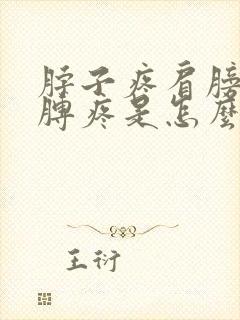 脖子疼肩膀
脾疼是怎麼
王衍